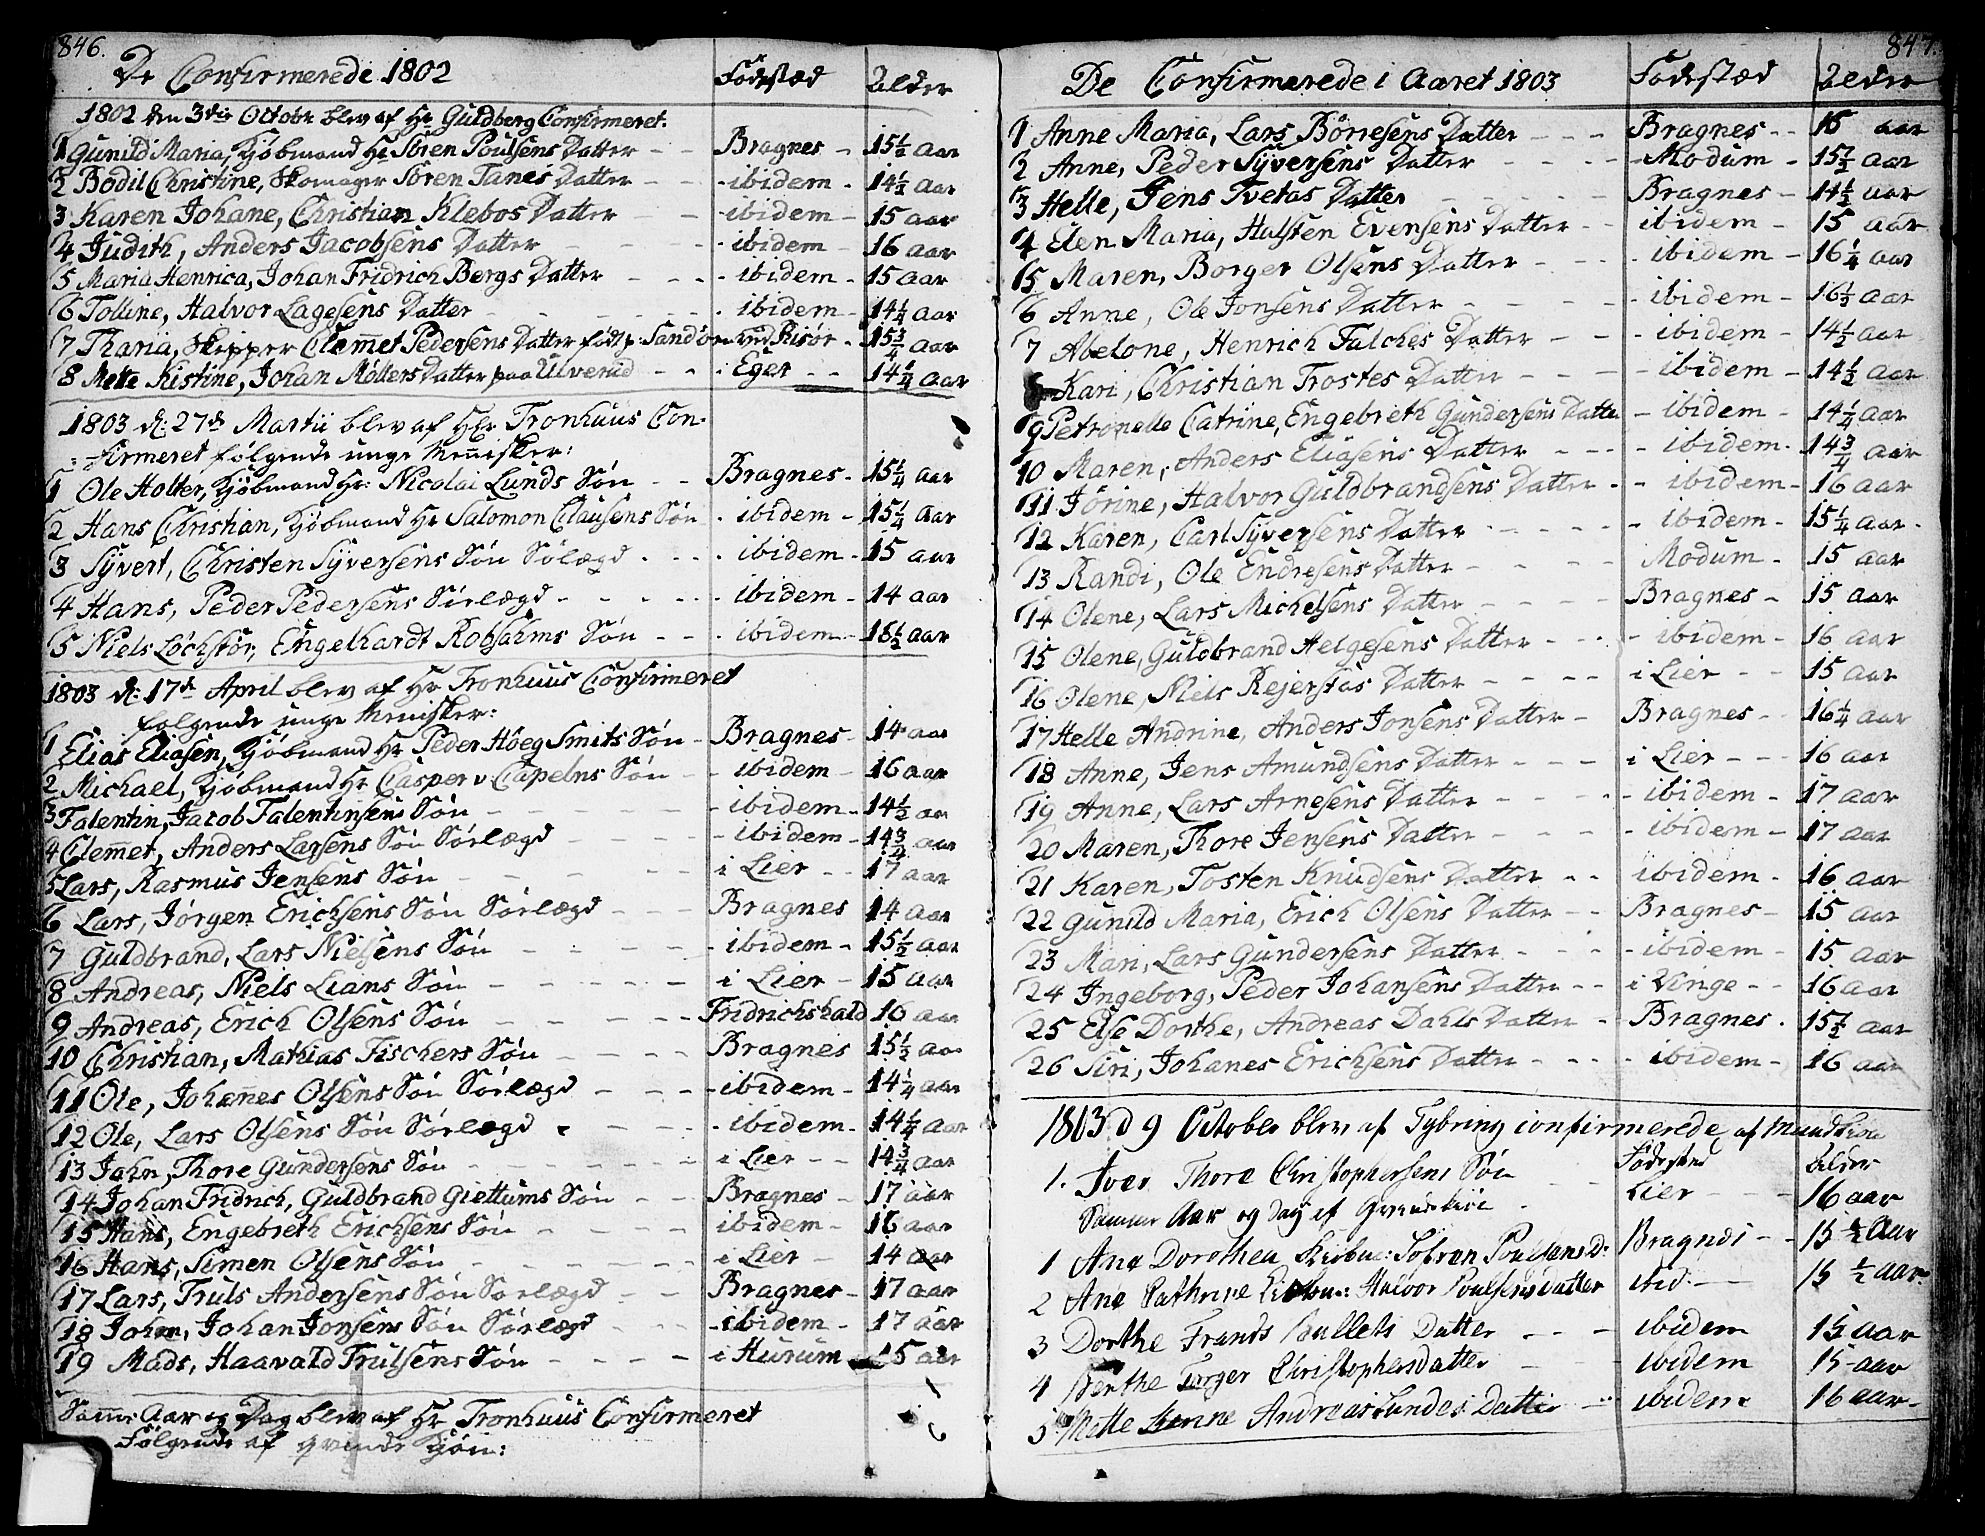 846.
De Confirmerede 1802 Fødestæd Alder
1802 den 3die Octobr blev af Hr Guldberg Confirmeret.
1 Gunild Maria, Kjøbmand Hr Sören Poulsens Datter - - Bragnes - 15½ Aar
2 Bodil Christine, Skomager Sören Tanes Datter - - - ibidem - 14½ Aar
3 Karen Johane, Christian Klebos Datter - - - ibidem - 15 aar
4 Judith, Anders Jacobsens Datter - - - ibidem - 16 Aar
5 Maria Henrica, Johan Fridrich Bergs Datter - - - ibidem - 15 Aar
6 Tolline, Halvor Lagesens Datter - - - ibidem - 14¼ Aar
7 Tharia, Skipper Clem̄et Pedersens Datter født p: Sandøen ved Risør - 15¾ Aar
8 Mette Kistine, Johan Möllers Datter paa Ulverud - - Eger - - 14¼ Aar
1803 d: 27de Martii blev af Hr Tronhuus Con-
firmeret følgende unge Men̄isker:
1 Ole Holter, Kjøbmand Hr: Nicolai Lunds Sön - - Bragnes - 15¼ Aar
2 Hans Christian, Kjøbmand Hr Salomon Clausens Sön - ibidem - 15¼ Aar
3 Syvert, Christen Syversens Sön Sölægd - - ibidem - 15 Aar
4 Hans, Peder Pedersens Sörlægd - - - ibidem - 14 aar
5 Niels Löchstör, Engelhardt Robsahms Sön - - ibidem - 16½ Aar
1803 d: 17de April blev af Hr Tronhuus Confirmeret
følgende unge Men̄isker:
1 Elias Eliasen, Kjøbmand Hr Peder Höeg Smits Sön - Bragnes - 14 aar
2 Michael, Kjøbmand Hr Casper v Capelns Sön - - ibidem - 16 aar
3 Falentin, Jacob Falentinsens Sön - - - ibidem - 14½ aar
4 Clem̄et, Anders Larsens Sön Sörlægd - - - ibidem - 14¾ aar
5 Lars, Rasmus Jensens Sön - - - i Lier - - 17 aar
6 Lars, Jörgen Erichsens Sön Sörlægd - - - Bragnes 14 Aar
7 Guldbrand, Lars Nielsens Sön - - - ibidem - 15½ Aar
8 Andreas, Niels Lians Sön - - - i Lier - 15 Aar
9 Andreas, Erich Olsens Sön - - - Fridrichshald 16 aar
10 Christian, Mathias Fischers Sön - - - Bragnes 15½ aar
11 Ole, Johan̄es Olsens Sön Sörlægd - - - ibidem - 14¼ aar
12 Ole, Lars Olsens Sön Sörlægd - - ibidem - 14¼ Aar
13 John, Thore Gundersens Sön - - - i Lier - - 14¾ aar
14 Johan Fridrich, Guldbrand Giettums Sön - - Bragnes - 17 aar
15 Hans, Engebreth Erichsens Sön - - - ibidem - 16 aar
16 Hans, Simen Olsens Sön - - - i Lier - 14 aar
17 Lars, Truls Andersens Sön Sorlægd - - Bragnes - 17 aar
18 John, Johan Jonsens Sön Sörlægd - - - ibidem - 17 aar
19 Mads, Haavald Trulsens Sön - - - i Hurum 15 aar
Sam̄e Aar og Dag blev af Hr Tronhuus Confirmeret
Følgende af Qvinde Kjön:
847.
De Confirmerede i Aaret 1803 Fødestæd Alder
1 Anne Maria, Lars Börresens Datter - - - Bragnes - - 15 aar
2 Anne, Peder Syversens Datter - - - Modum - 15½ aar
3 Helle, Jens Tvetas Datter - - - Bragnes - 14½ aar
4 Elen Maria, Halsten Evensens Datter - - ibidem - 15 aar
5 Maren, Borger Olsens Datter - - - ibidem - 16¼ aar
6 Anne, Ole Jonsens Datter - - - ibidem - 16½ Aar
7 Abelone, Henrich Falches Datter - - - ibidem - 14½ aar
8 Kari, Christian Trostes Datter - - - ibidem - 14½ aar
9 Petronelle Catrine, Engebreth Gundersens Datter - ibidem - 14¼ aar
10 Maren, Anders Eliasens Datter - - - ibidem - 14¾ aar
11 Jörine, Halvor Guldbrandsens Datter - - ibidem - 16 aar
12 Karen, Carl Syversens Datter - - - ibidem - 15¼ aar
13 Randi, Ole Endresens Datter - - - Modum - 15 aar
14 Olene, Lars Michelsens Datter - - - Bragnes - 15 aar
15 Olene, Guldbrand Helgesens Datter - - - ibidem - 16 aar
16 Olene, Niels Rejerstas Datter - - - i Lier - - 15 aar
17 Helle Andrine, Anders Jonsens Datter - Bragnes - - 16¼ aar
18 Anne, Jens Amundsens Datter - - - i Lier - - - 16 aar
19 Anne, Lars Arnesens Datter - - - ibidem - 17 aar
20 Maren, Thore Jensens Datter - - - ibidem - 17 aar
21 Karen, Tosten Knudsens Datter - - ibidem - 16 aar
22 Gunild Maria, Erich Olsens Datter - - Bragnes - 15 aar
23 Mari, Lars Gundersens Datter - - - ibidem - 15 aar
24 Ingeborg, Peder Johansens Datter - - i Vinge - - 16 aar
25 Else Dorthe, Andreas Dahls Datter - Bragnes. 15½ aar
26 Siri, Johanes Erichsens Datter - - - ibidem - 16 aar
1803 d 9 October blev af Tybring confirmerede af Mandkiøn
Fødested Alder
1. Iver Thore Christophersens Sön - - Lier - - 16 aar
Samme Aar og Dag af Qvindekiøn
1 Ane Dorothea Kiøbm: Sofren Poulsens D: Bragnes - - 15½ Aar
2 Ane Cathrine Kiøbm: Halvor Poulsens Datter ibid: - 15½ aar
3 Dorthe Frands Bullets Datter - - - ibidem 15½ aar
4 Berthe Torger Christophersdatter - - ibidem 15 aar
5 Mette Andreas Lundes Datter - - ibidem 16 aar